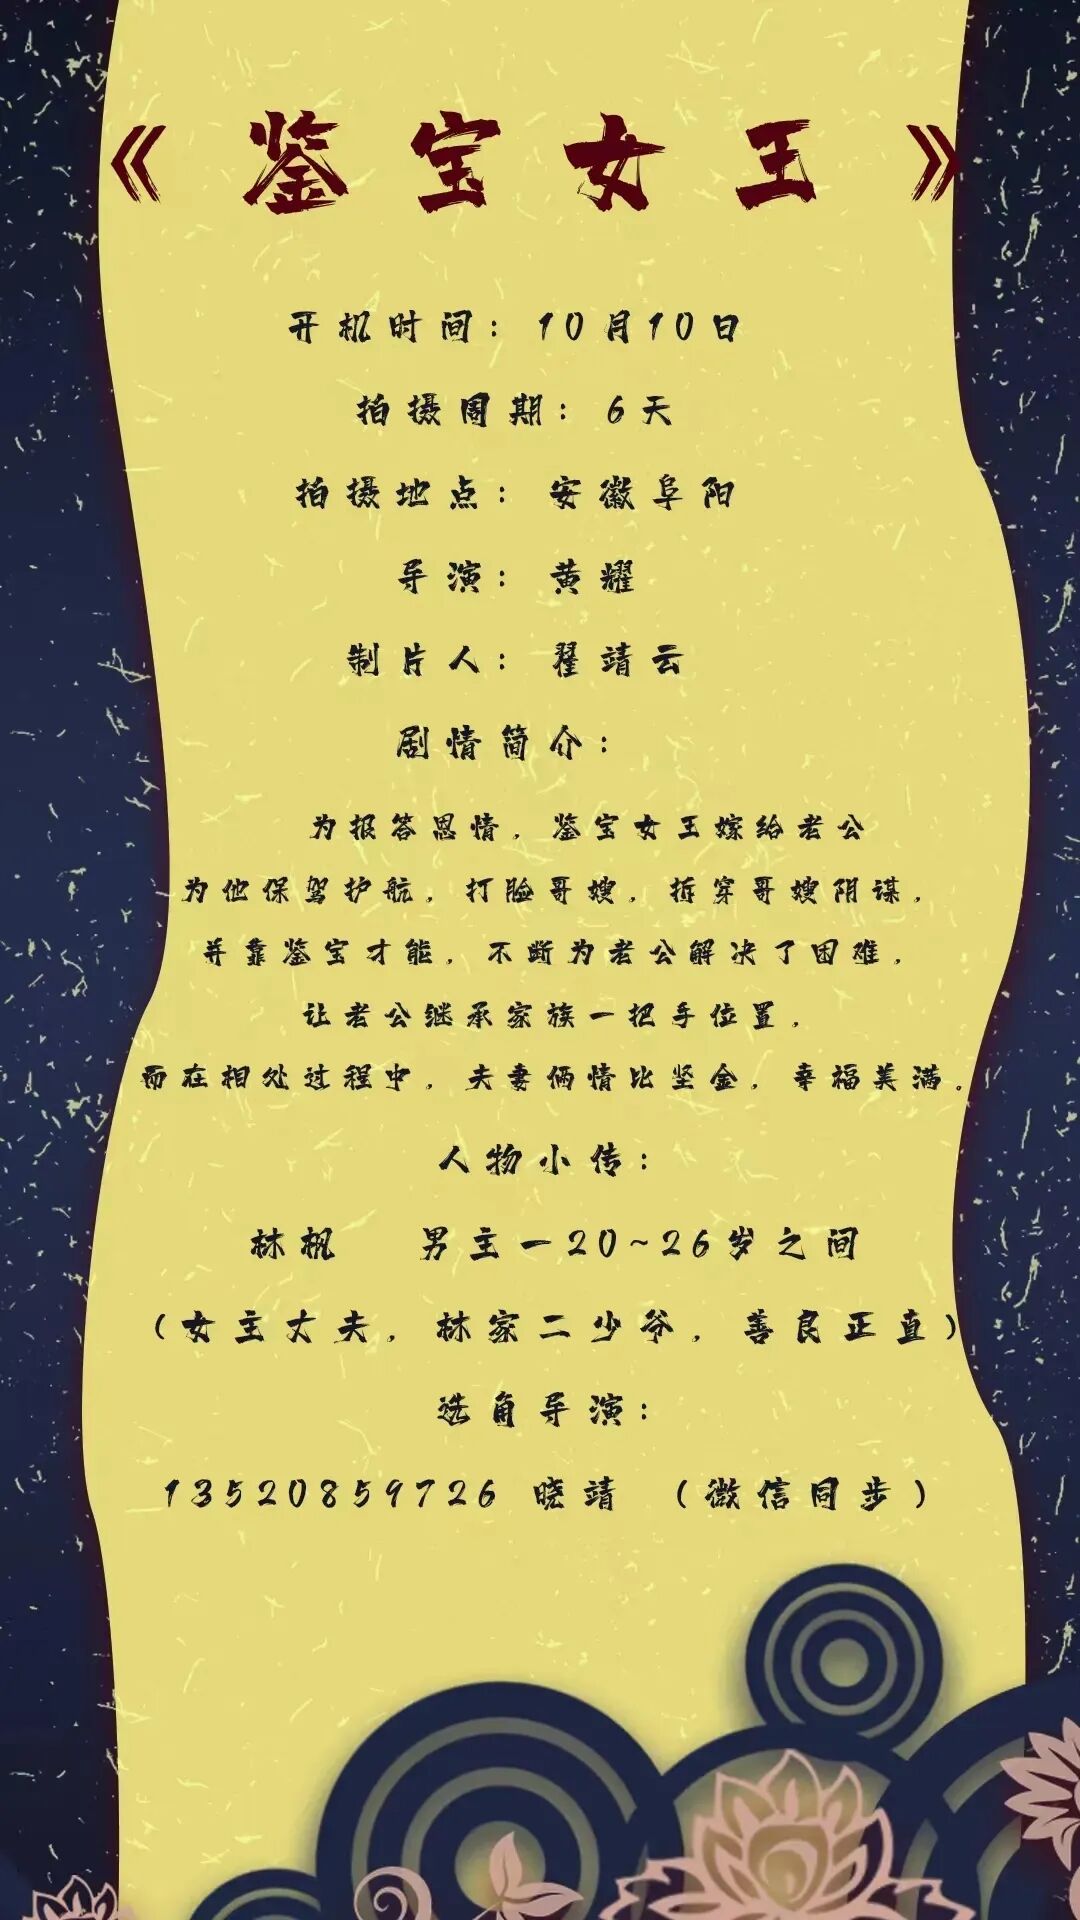 《鉴宝女王》
开机时间：10月10日
拍摄周期：6天
拍摄地点：安徽阜阳
导演：黄耀
制片人：翟靖云
剧情简介：
为报答恩情，鉴宝女王嫁给老公
为他保驾护航，打脸哥嫂，拆穿哥嫂阴谋，
并靠鉴宝才能，不断为老公解决了困难，
让老公继承家族一把手位置，
而在相处过程中，夫妻俩情比坚金，幸福美满。
人物小传：
林枫 男主一20~26岁之间
（女主丈夫，林家二少爷，善良正直）
选角导演：
13520859726 晓靖 （微信同步）